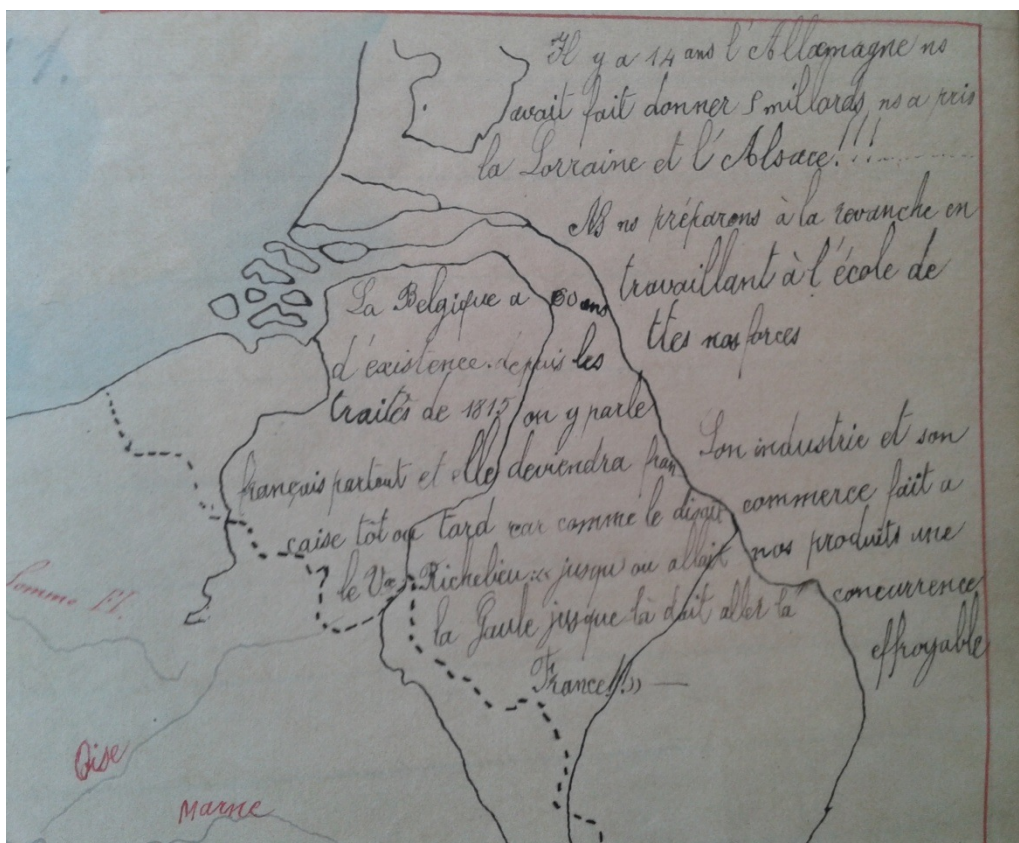 1.
Il y a 14 ans l'Allemagne ns
avait fait donner 5 millards, ns a pris
la Lorraine et l'Alsace!!!
Ns ns préparons à la revanche en
travaillant à l'école de
ttes nos forces
La Belgique a 60 ans
d'éxistence. depuis les
traités de 1815 on y parle
français partout et elle deviendra fran
caise tôt ou tard car comme le disait
le Richelieu « jusqu'ou allait
la Gaule jusque là doit aller la
France!!! » —
Son industrie et son
commerce fait a
nos produits une
concurrence
effroyable
Somme Fl.
Oise
Marne